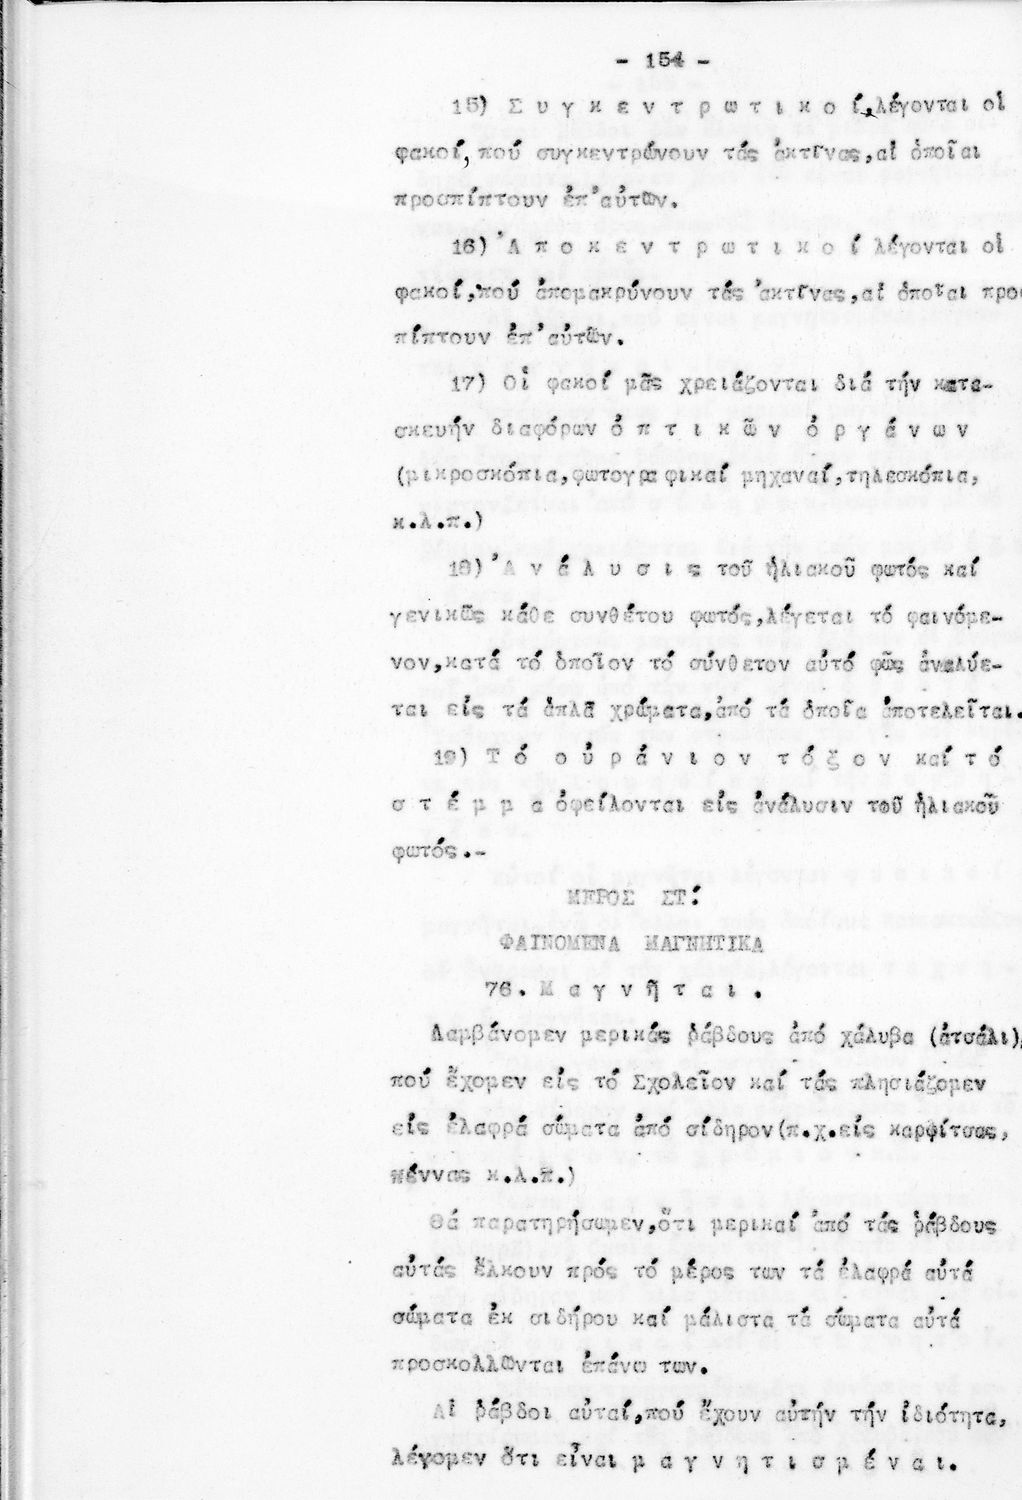 - 154 -
15) Σ υ γ κ ε ν τ ρ ω τ ι κ ο ί,λέγονται οἱ
φακοί, πού συγκεντρώνουν τάς ἀκτῖνας,αἱ ὁποῖαι
προσπίπτουν ἐπ'αὐτῶν.
16) Ἀ π ο κ ε ν τ ρ ω τ ι κ ο ί λέγονται οἱ
φακοί,πού ἀπομακρύνουν τάς ἀκτῖνας,αἱ ὁποῖαι προσ
πίπτουν ἐπ'αὐτῶν.
17) Οἱ φακοί μᾶς χρειάζονται διά τήν κατα-
σκευήν διαφόρων ὀ π τ ι κ ῶ ν ὀ ρ γ ά ν ω ν
(μικροσκόπια,φωτογραφικαί μηχαναί,τηλεσκόπια,
κ.λ.π.)
18) Ἀ ν ά λ υ σ ι ς τοῦ ἡλιακοῦ φωτός καί
γενικῶς κάθε συνθέτου φωτός,λέγεται τό φαινόμε-
νον,κατά τό ὁποῖον τό σύνθετον αὐτό φῶς ἀναλύε-
ται εἰς τά ἁπλᾶ χρώματα,ἀπό τά ὁποῖα ἀποτελεῖται.
19) Τ ό ο ὐ ρ ά ν ι ο ν τ ό ξ ο ν καί τ ό
σ τ έ μ μ α ὀφείλονται εἰς ἀνάλυσιν τοῦ ἡλιακοῦ
φωτός.-
ΜΕΡΟΣ ΣΤ!
ΦΑΙΝΟΜΕΝΑ ΜΑΓΝΗΤΙΚΑ
76. Μ α γ ν ῆ τ α ι .
Λαμβάνομεν μερικάς ῥάβδους ἀπό χάλυβα (ἀτσάλι),
πού ἔχομεν εἰς τό Σχολεῖον καί τάς πλησιάζομεν
εἰς ἐλαφρά σώματα ἀπό σίδηρον(π.χ.εἰς καρφίτσας,
πέννας κ.λ.π.)
Θά παρατηρήσωμεν,ὅτι μερικαί ἀπό τάς ῥάβδους
αὐτάς ἕλκουν πρός τό μέρος των τά ἐλαφρά αὐτά
σώματα ἐκ σιδήρου καί μάλιστα τά σώματα αὐτά
προσκολλῶνται ἐπάνω των.
Αἱ ῥάβδοι αὐταί,πού ἔχουν αὐτήν τήν ἰδιότητα,
λέγομεν ὅτι εἶναι μ α γ ν η τ ι σ μ έ ν α ι .